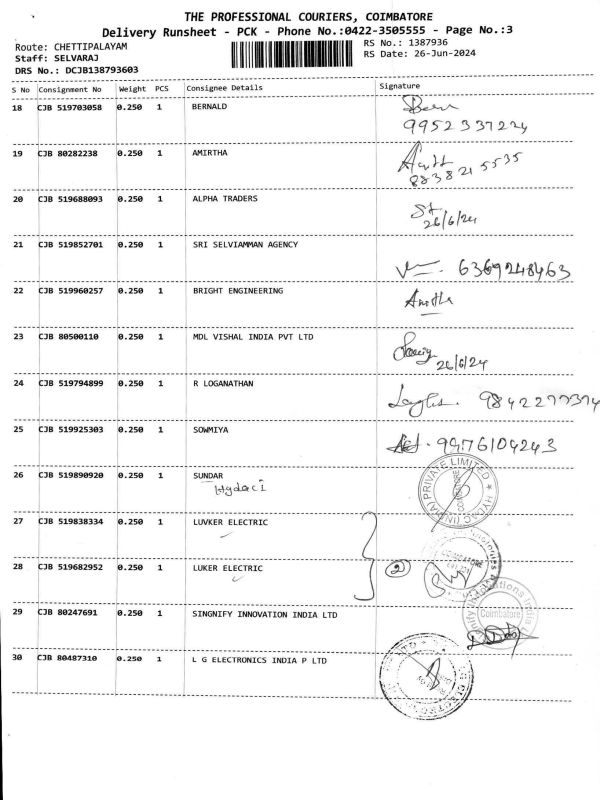 THE PROFESSIONAL COURIERS, COIMBATORE
Delivery Runsheet - PCK - Phone No.:0422-3505555 - Page No.:3
Route: CHETTIPALAYAM
Staff: SELVARAJ
DRS No.: DCJB138793603
RS No.: 1387936
RS Date: 26-Jun-2024
S No Consignment No Weight PCS Consignee Details Signature
18 CJB 519703058 0.250 1 BERNALD
9952337224
19 CJB 80282238 0.250 1 AMIRTHA
8838215535
20 CJB 519688093 0.250 1 ALPHA TRADERS
26/6/24
21 CJB 519852701 0.250 1 SRI SELVIAMMAN AGENCY
6369248463
22 CJB 519960257 0.250 1 BRIGHT ENGINEERING
23 CJB 80500110 0.250 1 MDL VISHAL INDIA PVT LTD
26/6/24
24 CJB 519794899 0.250 1 R LOGANATHAN
25 CJB 519925303 0.250 1 SOWMIYA
9976104243
26 CJB 519890920 0.250 1 SUNDAR
HYDAC (INDIA) PRIVATE LIMITED
COIMBATORE
27 CJB 519838334 0.250 1 LUVKER ELECTRIC
28 CJB 519682952 0.250 1 LUKER ELECTRIC
2
29 CJB 80247691 0.250 1 SINGNIFY INNOVATION INDIA LTD
Coimbatore
30 CJB 80487310 0.250 1 L G ELECTRONICS INDIA P LTD